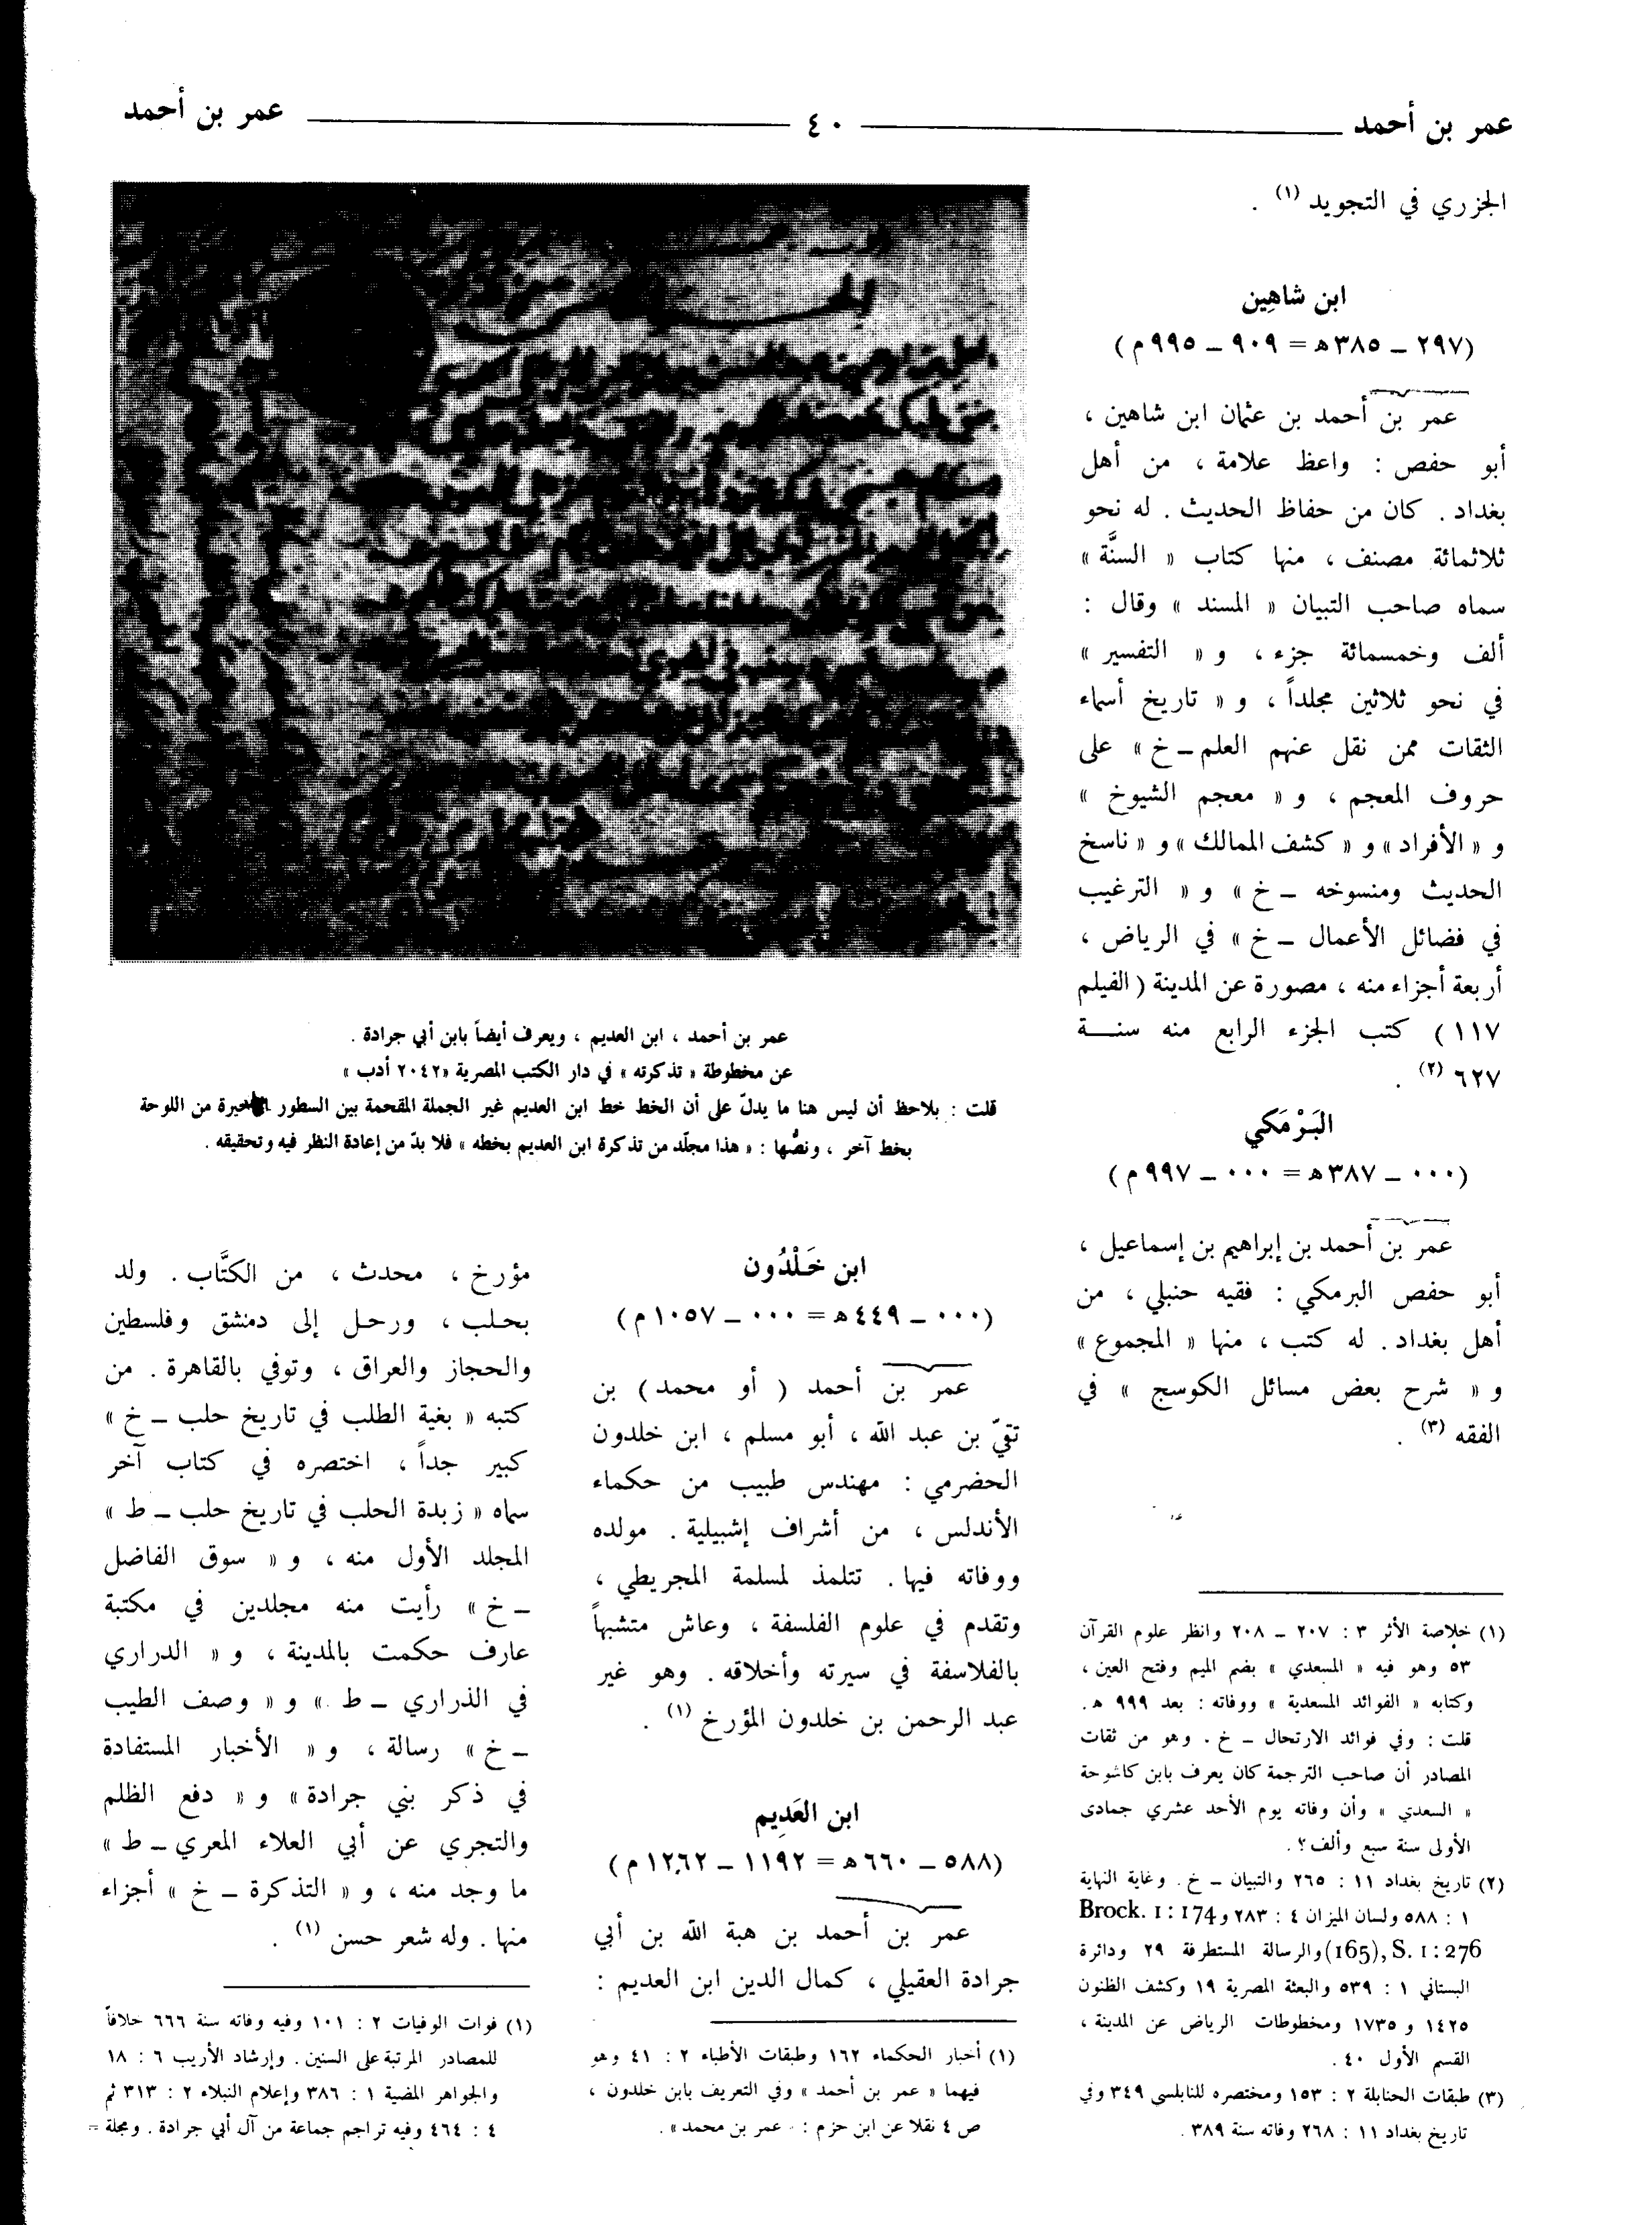 عمر بن أحمد
٤٠
عمر بن أحمد
الجزري في التجويد (١) .
ابن شاهِين
(٢٩٧ – ٣٨٥ ه = ٩٠٩ – ٩٩٥ م)
عمر بن أحمد بن عثمان ابن شاهين ،
أبو حفص : واعظ علامة ، من أهل
بغداد . كان من حفاظ الحديث . له نحو
ثلاثمائة مصنف ، منها كتاب « السنَّة »
سماه صاحب التبيان « المسند » وقال :
ألف وخمسمائة جزء ، و « التفسير »
في نحو ثلاثين مجلداً ، و « تاريخ أسماء
الثقات ممن نقل عنهم العلم – خ » على
حروف المعجم ، و « معجم الشيوخ »
و « الأفراد » و « كشف الممالك » و « ناسخ
الحديث ومنسوخه – خ » و « الترغيب
في فضائل الأعمال – خ » في الرياض ،
أربعة أجزاء منه ، مصورة عن المدينة ( الفيلم
١١٧ ) كتب الجزء الرابع منه سنة
٦٢٧ (٢) .
البَرْمَكي
(٠٠٠ – ٣٨٧ ه = ٠٠٠ – ٩٩٧ م)
عمر بن أحمد بن إبراهيم بن إسماعيل ،
أبو حفص البرمكي : فقيه حنبلي ، من
أهل بغداد . له كتب ، منها « المجموع »
و « شرح بعض مسائل الكوسج » في
الفقه (٣) .
(١) خلاصة الأثر ٣ : ٢٠٧ – ٢٠٨ وانظر علوم القرآن
٥٣ وهو فيه « المسعدي » بضم الميم وفتح العين ،
وكتابه « الفوائد المسعدية » ووفاته : بعد ٩٩٩ ه .
قلت : وفي فوائد الارتحال – خ . وهو من ثقات
المصادر أن صاحب الترجمة كان يعرف بابن كاشوحة
« السعدي » وأن وفاته يوم الأحد عشري جمادى
الأولى سنة سبع وألف ؟ .
(٢) تاريخ بغداد ١١ : ٢٦٥ والتبيان – خ . وغاية النهاية
١ : ٥٨٨ ولسان الميزان ٤ : ٢٨٣ و Brock. I : 174
(165), S. I : 276 والرسالة المستطرفة ٢٩ ودائرة
البستاني ١ : ٥٣٩ والبعثة المصرية ١٩ وكشف الظنون
١٤٢٥ و ١٧٣٥ ومخطوطات الرياض عن المدينة ،
القسم الأول ٤٠ .
(٣) طبقات الحنابلة ٢ : ١٥٣ ومختصره للنابلسي ٣٤٩ وفي
تاريخ بغداد ١١ : ٢٦٨ وفاته سنة ٣٨٩ .
عمر بن أحمد ، ابن العديم ، ويعرف أيضاً بابن أبي جرادة .
عن مخطوطة « تذكرته » في دار الكتب المصرية «٢٠٤٢ أدب »
قلت : يلاحظ أن ليس هنا ما يدلّ على أن الخط خط ابن العديم غير الجملة المقحمة بين السطور الأخيرة من اللوحة
بخط آخر ، ونصُّها : « هذا مجلّد من تذكرة ابن العديم بخطه » فلا بدّ من إعادة النظر فيه وتحقيقه .
ابن خَلْدُون
(٠٠٠ – ٤٤٩ ه = ٠٠٠ – ١٠٥٧ م)
عمر بن أحمد ( أو محمد ) بن
تقيّ بن عبد الله ، أبو مسلم ، ابن خلدون
الحضرمي : مهندس طبيب من حكماء
الأندلس ، من أشراف إشبيلية . مولده
ووفاته فيها . تتلمذ لمسلمة المجريطي ،
وتقدم في علوم الفلسفة ، وعاش متشبهاً
بالفلاسفة في سيرته وأخلاقه . وهو غير
عبد الرحمن بن خلدون المؤرخ (١) .
ابن العَدِيم
(٥٨٨ – ٦٦٠ ه = ١١٩٢ – ١٢٦٢ م)
عمر بن أحمد بن هبة الله بن أبي
جرادة العقيلي ، كمال الدين ابن العديم :
(١) أخبار الحكماء ١٦٢ وطبقات الأطباء ٢ : ٤١ وهو
فيهما « عمر بن أحمد » وفي التعريف بابن خلدون ،
ص ٤ نقلا عن ابن حزم : عمر بن محمد » .
مؤرخ ، محدث ، من الكتَّاب . ولد
بحلب ، ورحل إلى دمشق وفلسطين
والحجاز والعراق ، وتوفي بالقاهرة . من
كتبه « بغية الطلب في تاريخ حلب – خ »
كبير جداً ، اختصره في كتاب آخر
سماه « زبدة الحلب في تاريخ حلب – ط »
المجلد الأول منه ، و « سوق الفاضل
– خ » رأيت منه مجلدين في مكتبة
عارف حكمت بالمدينة ، و « الدراري
في الذراري – ط » و « وصف الطيب
– خ » رسالة ، و « الأخبار المستفادة
في ذكر بني جرادة » و « دفع الظلم
والتجري عن أبي العلاء المعري – ط »
ما وجد منه ، و « التذكرة – خ » أجزاء
منها . وله شعر حسن (١) .
(١) فوات الوفيات ٢ : ١٠١ وفيه وفاته سنة ٦٦٦ خلافاً
للمصادر المرتبة على السنين . وإرشاد الأريب ٦ : ١٨
والجواهر المضية ١ : ٣٨٦ وإعلام النبلاء ٢ : ٣١٣ ثم
٤ : ٤٦٤ وفيه تراجم جماعة من آل أبي جرادة . ومجلة =